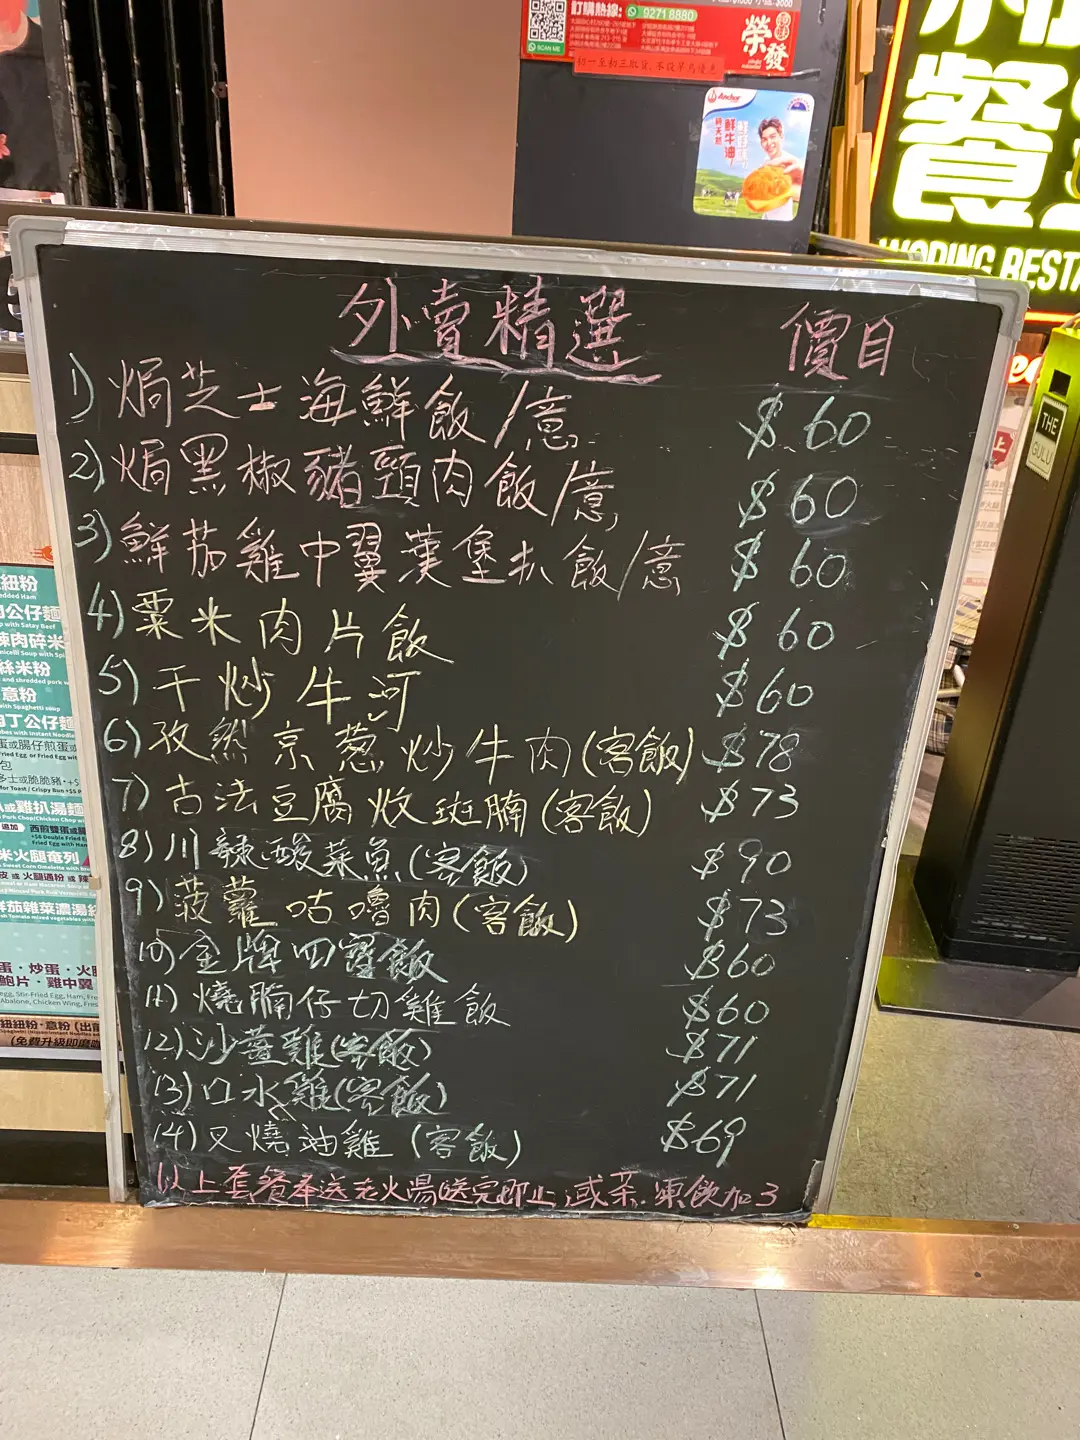 訂購熱線: 92718880
SCAN ME
榮發
初一至初三取貨,不設早鳥優惠
Anchor
鮮牛油
純天然
餐
WODING RESTA
THE GULU
外賣精選 價目
1) 焗芝士海鮮飯/意 $60
2) 焗黑椒豬頸肉飯/意 $60
3) 鮮茄雞中翼漢堡扒飯/意 $60
4) 粟米肉片飯 $60
5) 干炒牛河 $60
6) 孜然京葱炒牛肉(客飯) $78
7) 古法豆腐炆斑腩(客飯) $73
8) 川辣酸菜魚(客飯) $90
9) 菠蘿咕嚕肉(客飯) $73
10) 金牌四寳飯 $60
11) 燒腩仔切雞飯 $60
12) 沙薑雞(客飯) $71
13) 口水雞(客飯) $71
14) 叉燒油雞(客飯) $69
以上套餐奉送老火湯送完即止,或茶.凍飲加3
紐粉
公仔麵
辣肉碎米
絲米粉
意粉
肉丁公仔麵
with Instant Noodle
包
扒或雞扒湯麵
米火腿奄列
鮮茄雜菜濃湯
蛋・炒蛋・火
鮑片・雞中翼
Abalone, Chicken Wing,
(免費升級即磨咖